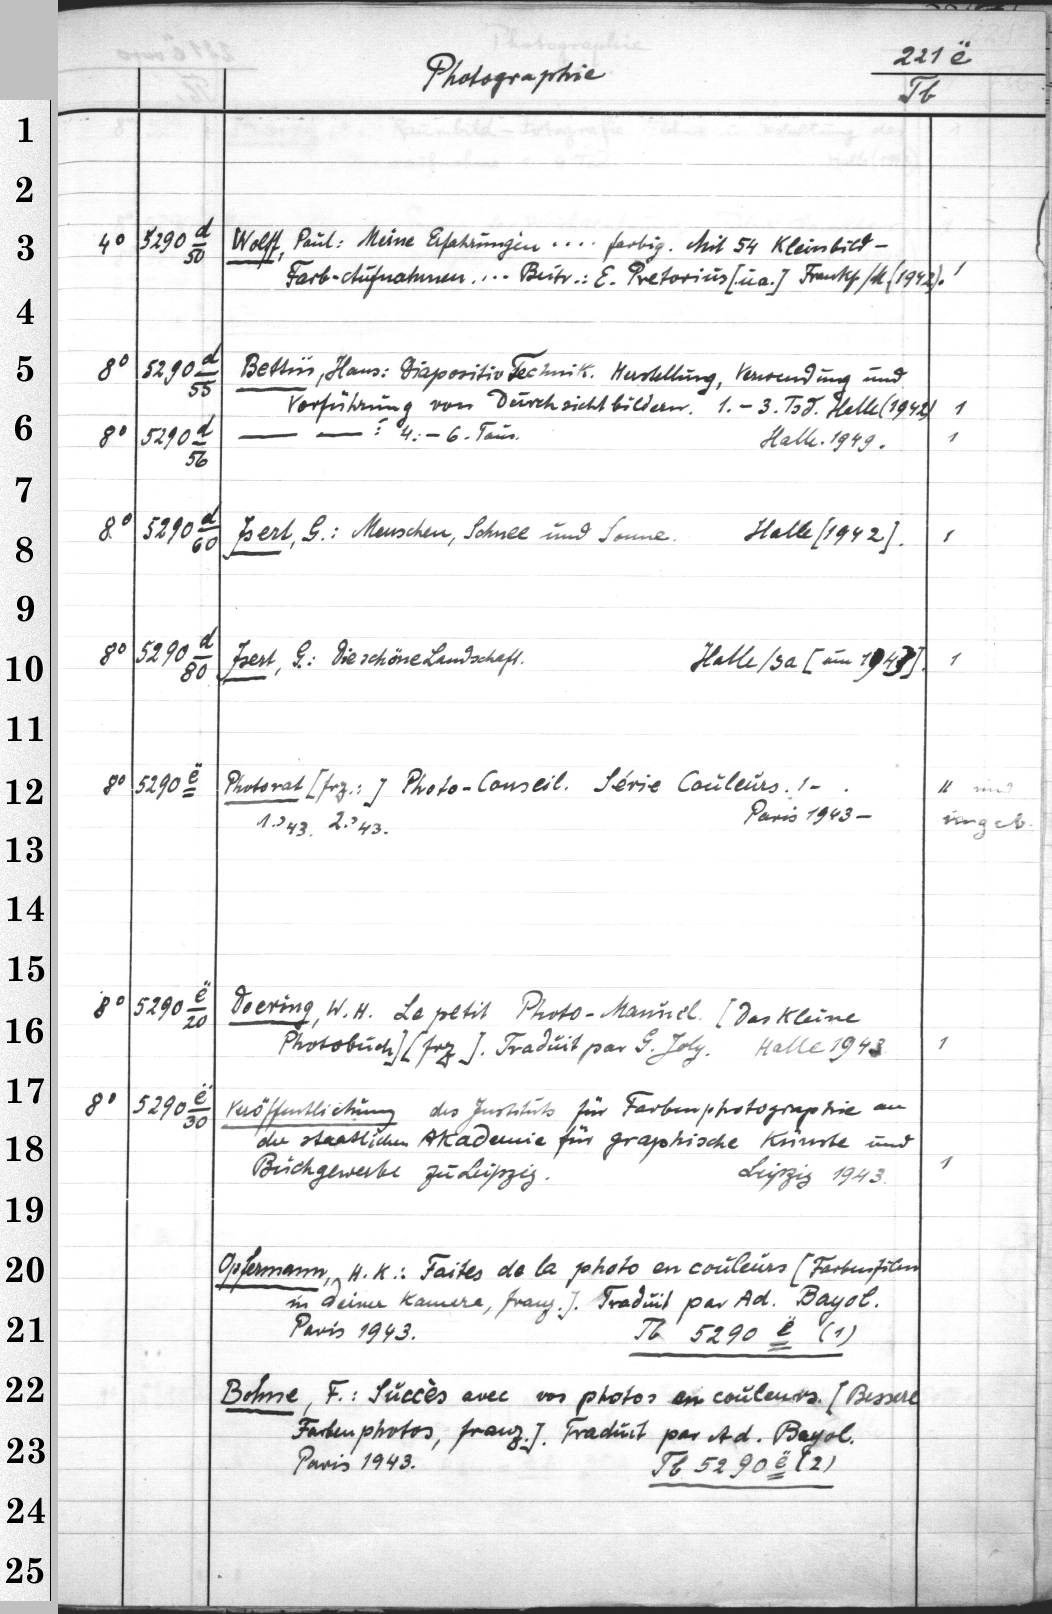 Photographie
221 ë
Tb
1
2
3
4
5
6
7
8
9
10
11
12
13
14
15
16
17
18
19
20
21
22
23
24
25
4° 5290 d/50 Wolff, Paul: Meine Erfahrungen .... farbig. Mit 54 Kleinbild-
Farb-Aufnahmen. ... Beitr.: E. Pretorius [u.a.] Frankf/M (1942). 1
8° 5290 d/55 Bettin, Hans: Diapositiv Technik. Herstellung, Verwendung und
Vorführung von Durchsichtbildern. 1.-3. Tsd. Halle (1942) 1
8° 5290 d/56 — — : 4.-6. Taus. Halle. 1949. 1
8° 5290 d/60 Isert, G.: Menschen, Schnee und Sonne. Halle [1942]. 1
8° 5290 d/80 Isert, G.: Die schöne Landschaft. Halle/Sa [um 1943]. 1
8° 5290 ë Photorat [frz.:] Photo-Conseil. Série Couleurs. 1- . 11 und
1.43. 2.43. Paris 1943- ungeb.
8° 5290 ë/20 Doering, W.H. Le petit Photo-Manuel. [Das Kleine
Photobuch] [frz]. Traduit par G. Joly. Halle 1943 1
8° 5290 ë/30 Veröffentlichung des Instituts für Farbenphotographie an
der staatlichen Akademie für graphische Künste und
Buchgewerbe zu Leipzig. Leipzig 1943. 1
Opfermann, H.K.: Faites de la photo en couleurs [Farbenfilm
in deiner Kamera, franz.]. Traduit par Ad. Bayol.
Paris 1943. Tb 5290 ë (1)
Bohne, F.: Succès avec vos photos en couleurs. [Bessere
Farbenphotos, franz.]. Traduit par Ad. Bayol.
Paris 1943. Tb 5290 ë (2)